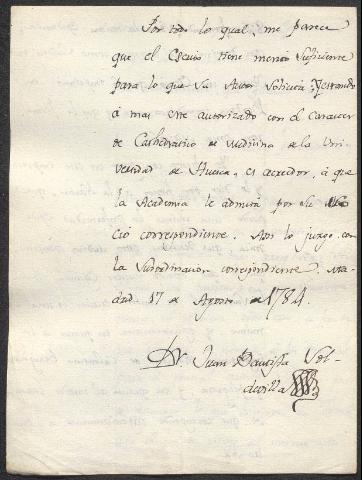 Por todo lo qual, me parece
que el Escrito tiene merito suficiente
para lo que su Autor solicita; y estando
á mas este autorizado con el caracter
de Cathedratico de Medicina de la Uni-
versidad de Huesca, es acreedor, á que
la Academia le admita por su Socio
correspondiente. Asi lo juzgo con
la subordinacion correspondiente. Ma-
drid 17 de Agosto de 1784.
Dr. Juan Bautista Sol-
devilla